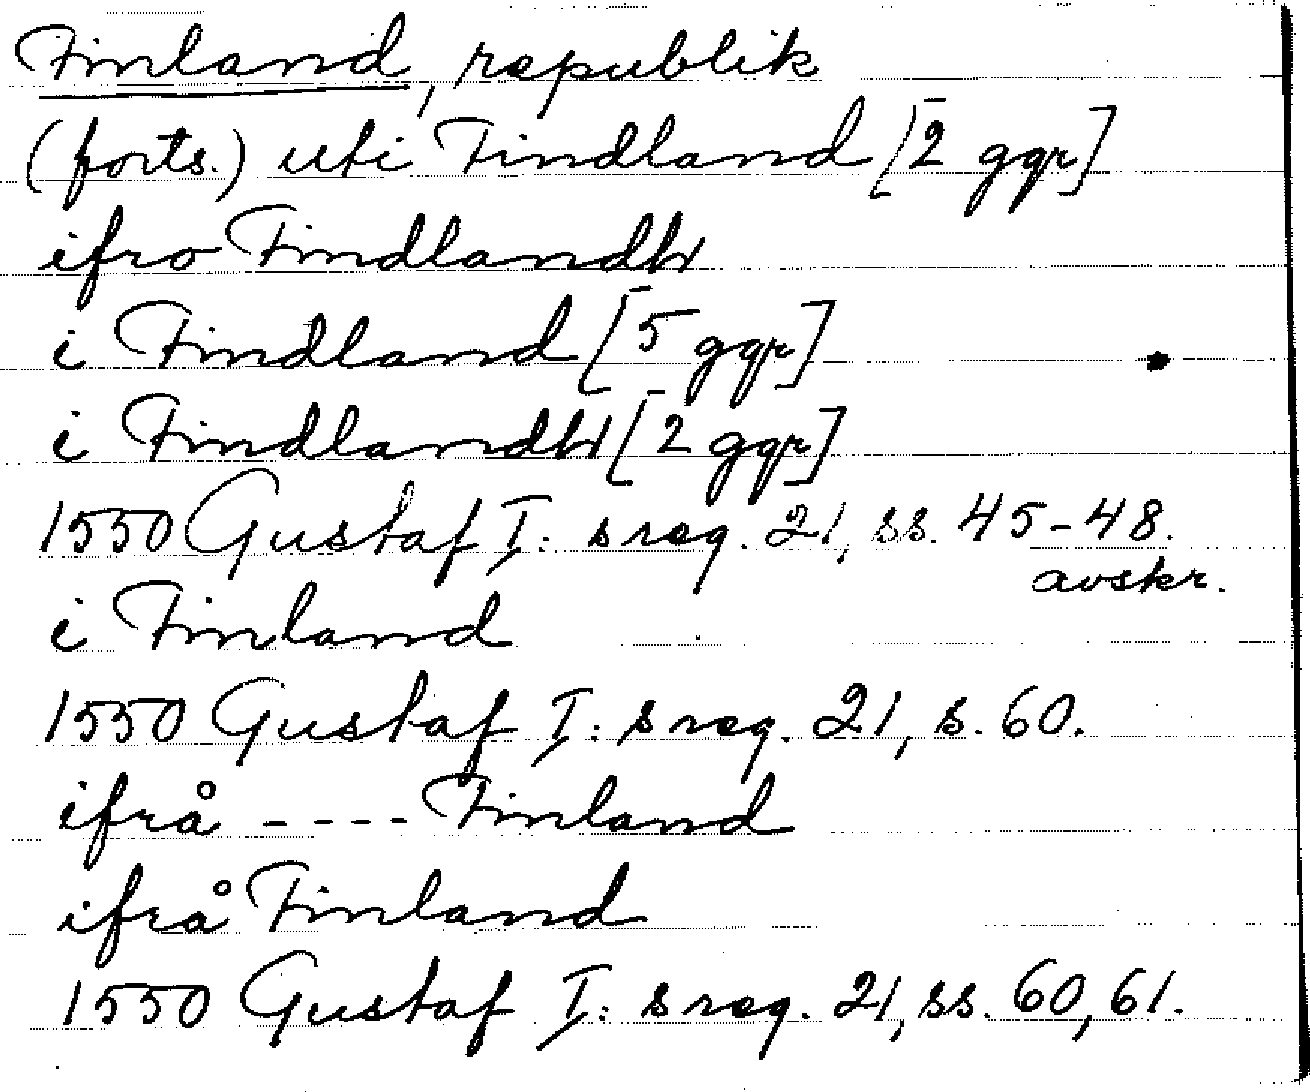 Finland, republik
(forts.) uti Findland [2 ggr]
ifro Findlandh
i Findland [5 ggr]
i Findlandh [2 ggr]
1550 Gustaf I: s reg. 21, ss. 45-48.
avskr.
i Finland
1550 Gustaf I: s reg. 21, s. 60.
ifrå ---- Finland
ifrå Finland
1550 Gustaf I: s reg. 21, ss. 60, 61.